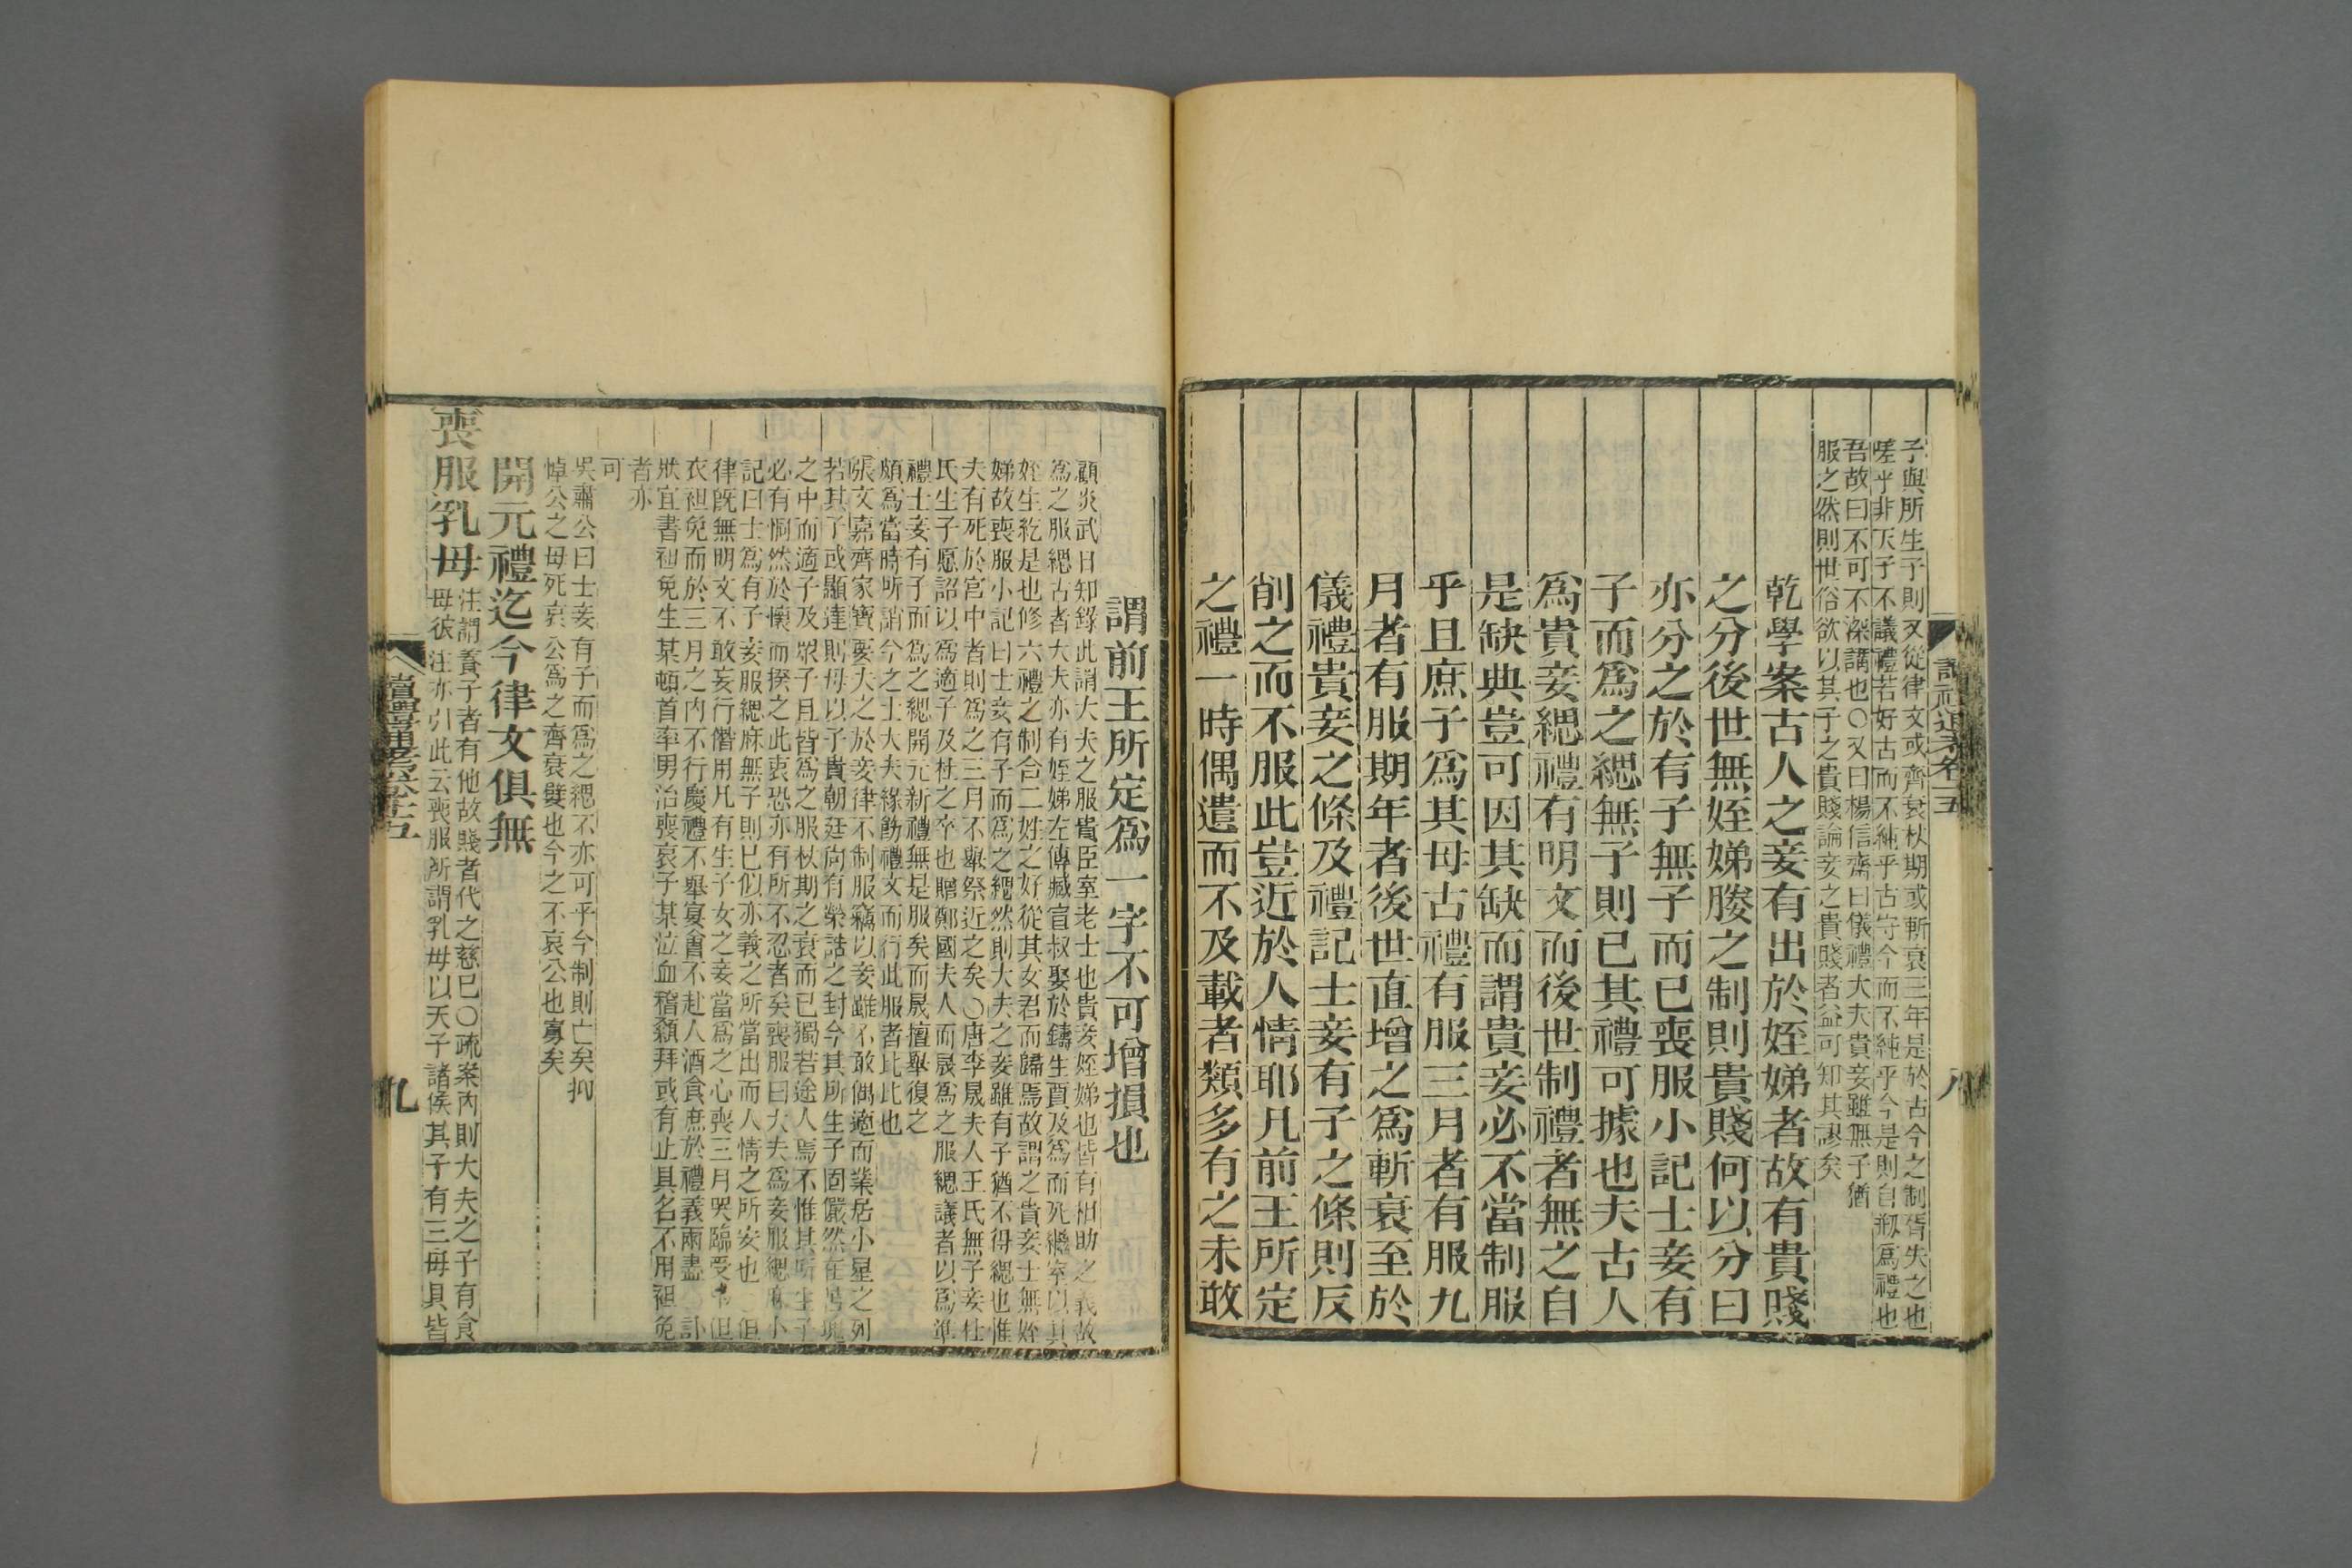 子與所生子則又從律文或齊衰杖期或斬衰三年是於古今之制胥失之也
嗟乎非天子不議禮若好古而不純乎古守今而不純乎今是則自剏爲禮也
吾故曰不可不深講也〇又曰楊信齋曰儀禮大夫貴妾雖無子猶
服之然則世俗欲以其子之貴賤論妾之貴賤者益可知其謬矣
乾學案古人之妾有出於姪娣者故有貴賤
之分後世無姪娣媵之制則貴賤何以分曰
亦分之於有子無子而已喪服小記士妾有
子而爲之緦無子則已其禮可據也夫古人
爲貴妾緦禮有明文而後世制禮者無之自
是缺典豈可因其缺而謂貴妾必不當制服
乎且庶子爲其母古禮有服三月者有服九
月者有服期年者後世直增之爲斬衰至於
儀禮貴妾之條及禮記士妾有子之條則反
削之而不服此豈近於人情耶凡前王所定
之禮一時偶遺而不及載者類多有之未敢
謂前王所定爲一字不可增損也
顧炎武日知錄此謂大夫之服貴臣室老士也貴妾姪娣也皆有相助之義故
爲之服緦古者大夫亦有姪娣左傳臧宣叔娶於鑄生賈及爲而死繼室以其
姪生紇是也修六禮之制合二姓之好從其女君而歸焉故謂之貴妾士無姪
娣故喪服小記曰士妾有子而爲之緦然則大夫之妾雖有子猶不得緦也惟
夫有死於宮中者則爲之三月不舉祭近之矣〇唐李晟夫人王氏無子妾杜
氏生子愿詔以爲適子及杜之卒也贈鄭國夫人而晟爲之服緦議者以爲準
禮士妾有子而爲之緦開元新禮無是服矣而晟擅舉復之
頗爲當時所誚今之士大夫緣飾禮文而行此服者比比也
張文嘉齊家寶要夫之於妾律不制服竊以妾雖不敢偶適而業居小星之列
若其子或顯達則母以子貴朝廷尚有榮誥之封今其所生子固儼然在苫塊
之中而適子及眾子且皆爲之服杖期之衰而已獨若途人焉不惟其所生子
必有惘然於懷而揆之此衷恐亦有所不忍者矣喪服曰大夫爲妾服緦麻小
記曰士爲有子妾服緦麻無子則已似亦義之所當出而人情之所安也但
律旣無明文不敢妄行僭用凡有生子女之妾當爲之心喪三月哭臨受弔但
衣袒免而於三月之內不行慶禮不舉宴會不赴人酒食庶於禮義兩盡訃
狀宜書袒免生某頓首率男治喪哀子某泣血稽顙拜或有止具名不用袒免
者亦
可
吳肅公曰士妾有子而爲之緦不亦可乎今制則亡矣抑
悼公之母死哀公爲之齊衰嬖也今之不哀公也寡矣
開元禮迄今律文俱無
喪服乳母
注謂養子者有他故賤者代之慈已〇疏案內則大夫之子有食
母彼注亦引此云喪服所謂乳母以天子諸侯其子有三母具皆
讀禮通考卷十五
八
讀禮通考卷十五
九